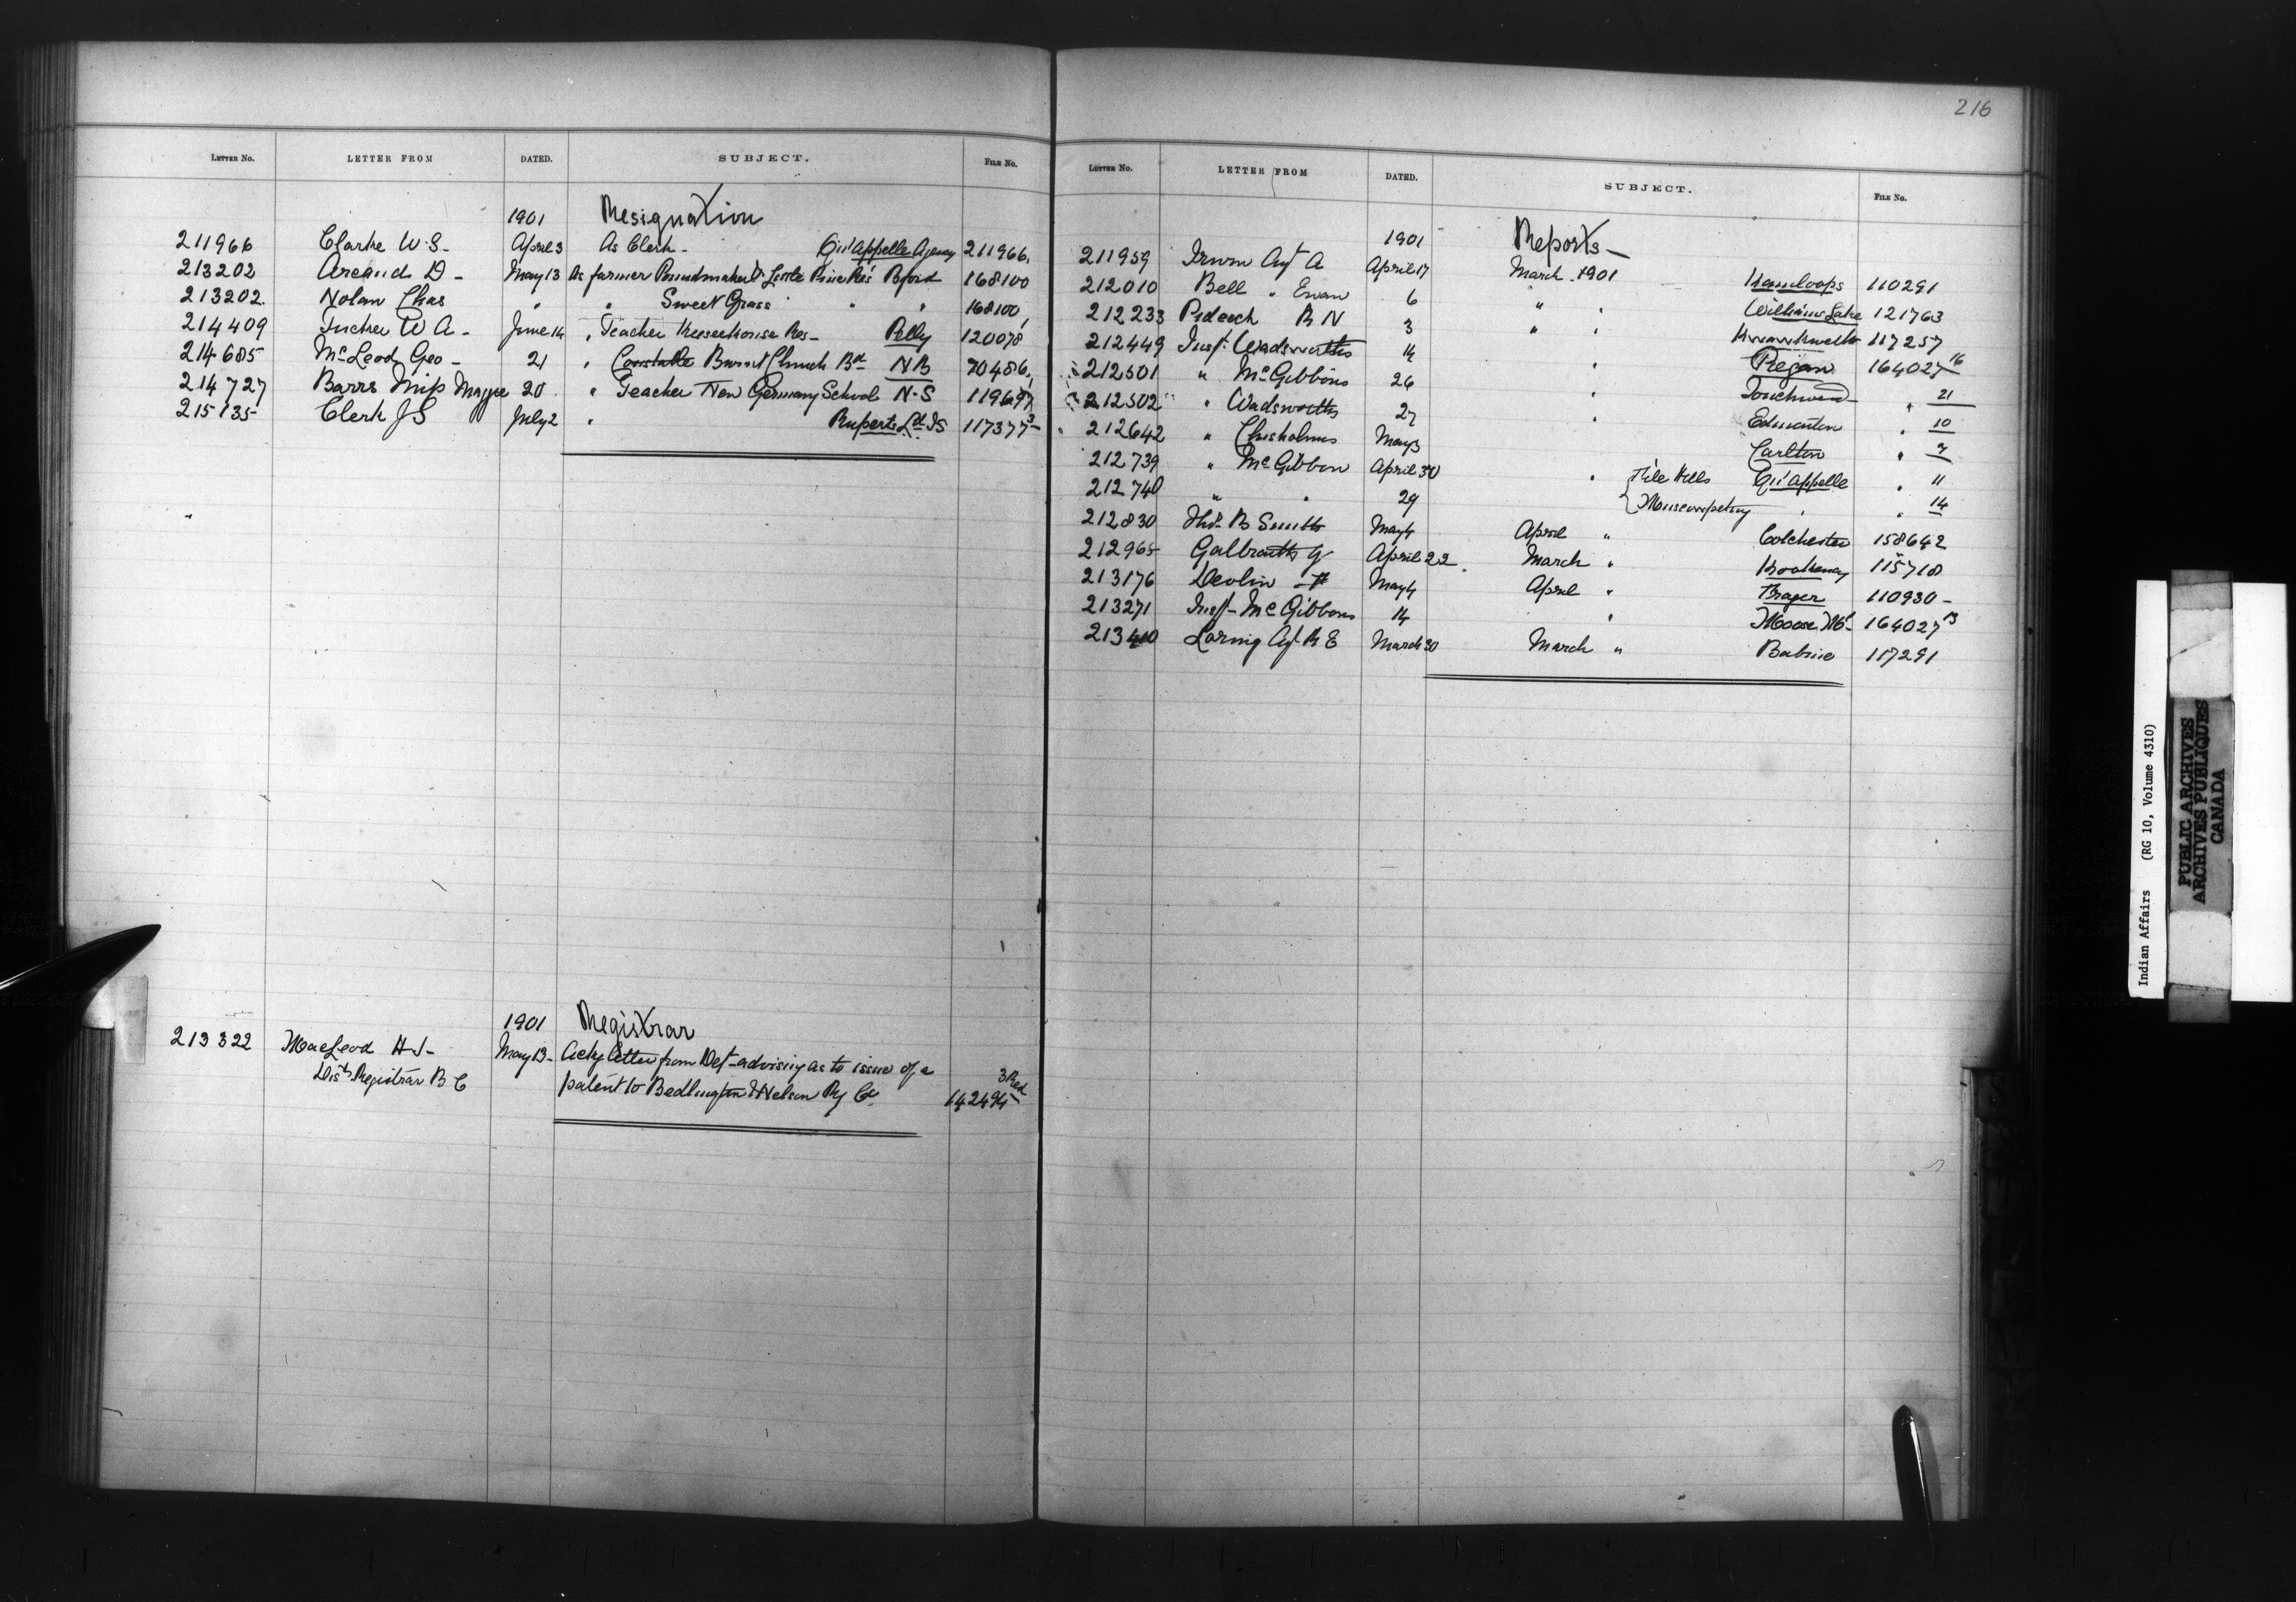 216
LETTER NO. LETTER FROM DATED. SUBJECT. FILE NO.
1901 Resignation
211966 Clarke W.S- April 3 As Clerk- Qu'Appelle Agency 211966
213202 Arcand D- May 13 As farmer Poundmaker & Little Pine Res Bford 168100
213202 Nolan Chas " " Sweet Grass " " 168100
214409 Tucker W A- June 14 " Teacher Keeseekouse Res- Pelly 120078
214685 McLeod Geo- 21 " Constable Burnt Church Bd NB 70486
214727 Barrs Miss Maggie 20 " Teacher New Germany School N-S 119697
215135 Clerk J S July 2 " Ruperts Ld IS 117377 3
1901 Registrar
213322 MacLeod H J- May 13- Ackg letter from Dept- advising as to issue of a
Dist Registrar B C patent to Bedlington & Nelson Ry Co 142494 3 Red
LETTER NO. LETTER FROM DATED. SUBJECT. FILE NO.
1901 Reports-
211959 Irwin Agt A April 17 March 1901 Kamloops 110291
212010 Bell " Ewan 6 " " Williams Lake 121763
212233 Pidcock R N 3 " " 117257
212449 Insp. Wadsworth 14 " Piegan 164027 16
212501 " McGibbons 26 " Touchwood " 21
212502 " Wadsworth 27 " Edmonton " 10
212642 " Chisholms May 3 Carlton "
212739 " McGibbon April 30 " File Hills Qu'Appelle " 11
212740 " " 29 Muscowpetung " " 14
212830 Thos B Smith May 4 April " Colchester 158642
212965 Galbraith G April 22 March " Kootenay 115718
213176 Devlin F May 4 April " Fraser 110930-
213271 Insp- McGibbons 14 " Moose Mt- 164027 13
213410 Loring Agt R E March 30 March " Babine 117291
Indian Affairs (RG 10, Volume 4310)
PUBLIC ARCHIVES
ARCHIVES PUBLIQUES
CANADA